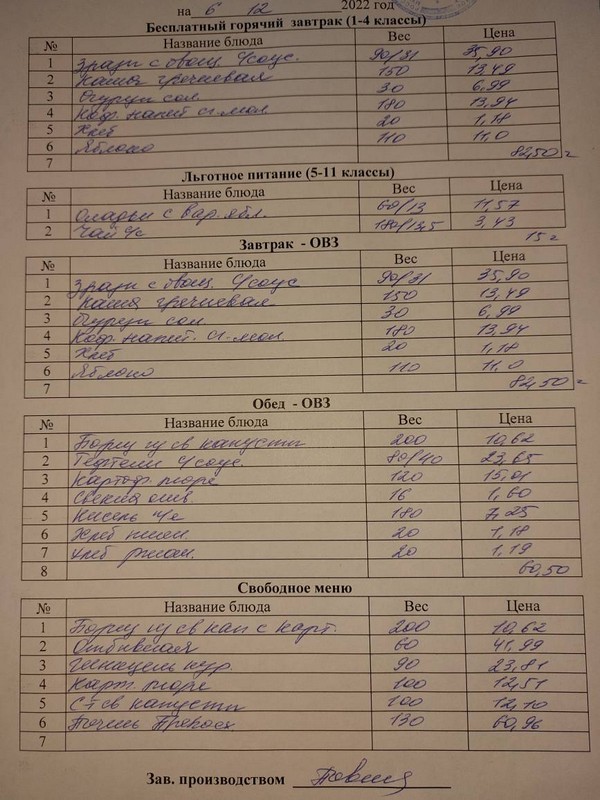 на 6 12 2022 год
Бесплатный горячий завтрак (1-4 классы)
№ Название блюда Вес Цена
1 Зразы с овощ. ч/соус. 90/31 35,90
2 Каша гречневая 150 13,49
3 Огурцы сол. 30 6,99
4 Коф. напит. сг. мол. 180 13,94
5 Хлеб 20 1,18
6 Яблоко 110 11,0
7 82,50
Льготное питание (5-11 классы)
№ Название блюда Вес Цена
1 Оладьи с вар. ябл. 60/13 11,57
2 Чай ч/с 180/13,5 3,43
15
Завтрак - ОВЗ
№ Название блюда Вес Цена
1 Зразы с овощ. ч/соус 90/31 35,90
2 Каша гречневая 150 13,49
3 Огурцы сол. 30 6,99
4 Коф. напит. сг. мол. 180 13,94
5 Хлеб 20 1,18
6 Яблоко 110 11,0
7 82,50
Обед - ОВЗ
№ Название блюда Вес Цена
1 Борщ из св капусты 200 10,62
2 Тефтели ч/соус. 80/40 23,65
3 Картоф. пюре 120 15,01
4 16 1,60
5 Кисель 180 7,25
6 Хлеб пшен. 20 1,18
7 Хлеб ржан. 20 1,19
8 60,50
Свободное меню
№ Название блюда Вес Цена
1 Борщ из св кап с карт. 200 10,62
2 Отбивная 60 41,99
3 Шницель кур. 90 23,81
4 Карт. пюре 100 12,51
5 С-т св капусты 100 12,10
6 Печень 130 60,96
7
Зав. производством